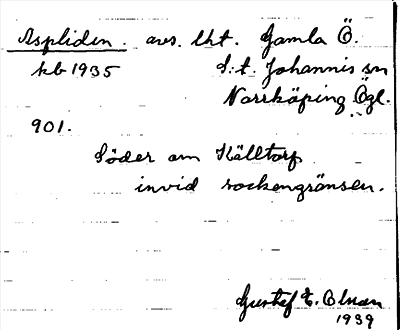 Aspliden. avs. lht. Gamla Ö.
kb 1935 S:t. Johannis sn
Norrköping Ögl.
901.
Söder om Källtorp
invid sockengränsen.
Gustaf E. Olsson
1939